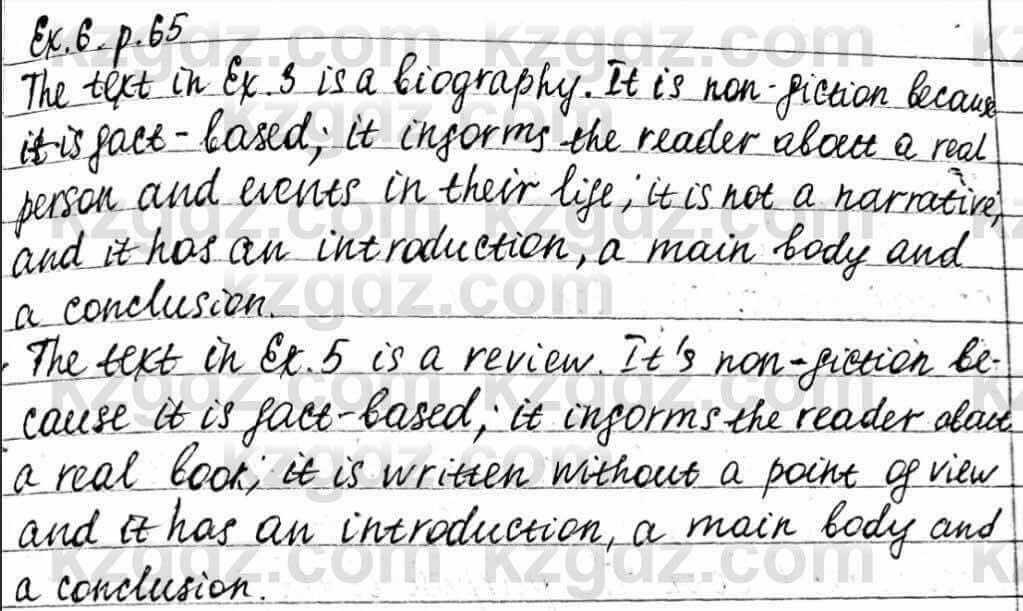 Ex. 6. p. 65
The text in Ex. 3 is a biography. It is non-fiction because
it is fact-based; it informs the reader about a real
person and events in their life; it is not a narrative,
and it has an introduction, a main body and
a conclusion.
The text in Ex. 5 is a review. It's non-fiction be-
cause it is fact-based; it informs the reader about
a real book; it is written without a point of view
and it has an introduction, a main body and
a conclusion.
kzgdz.com